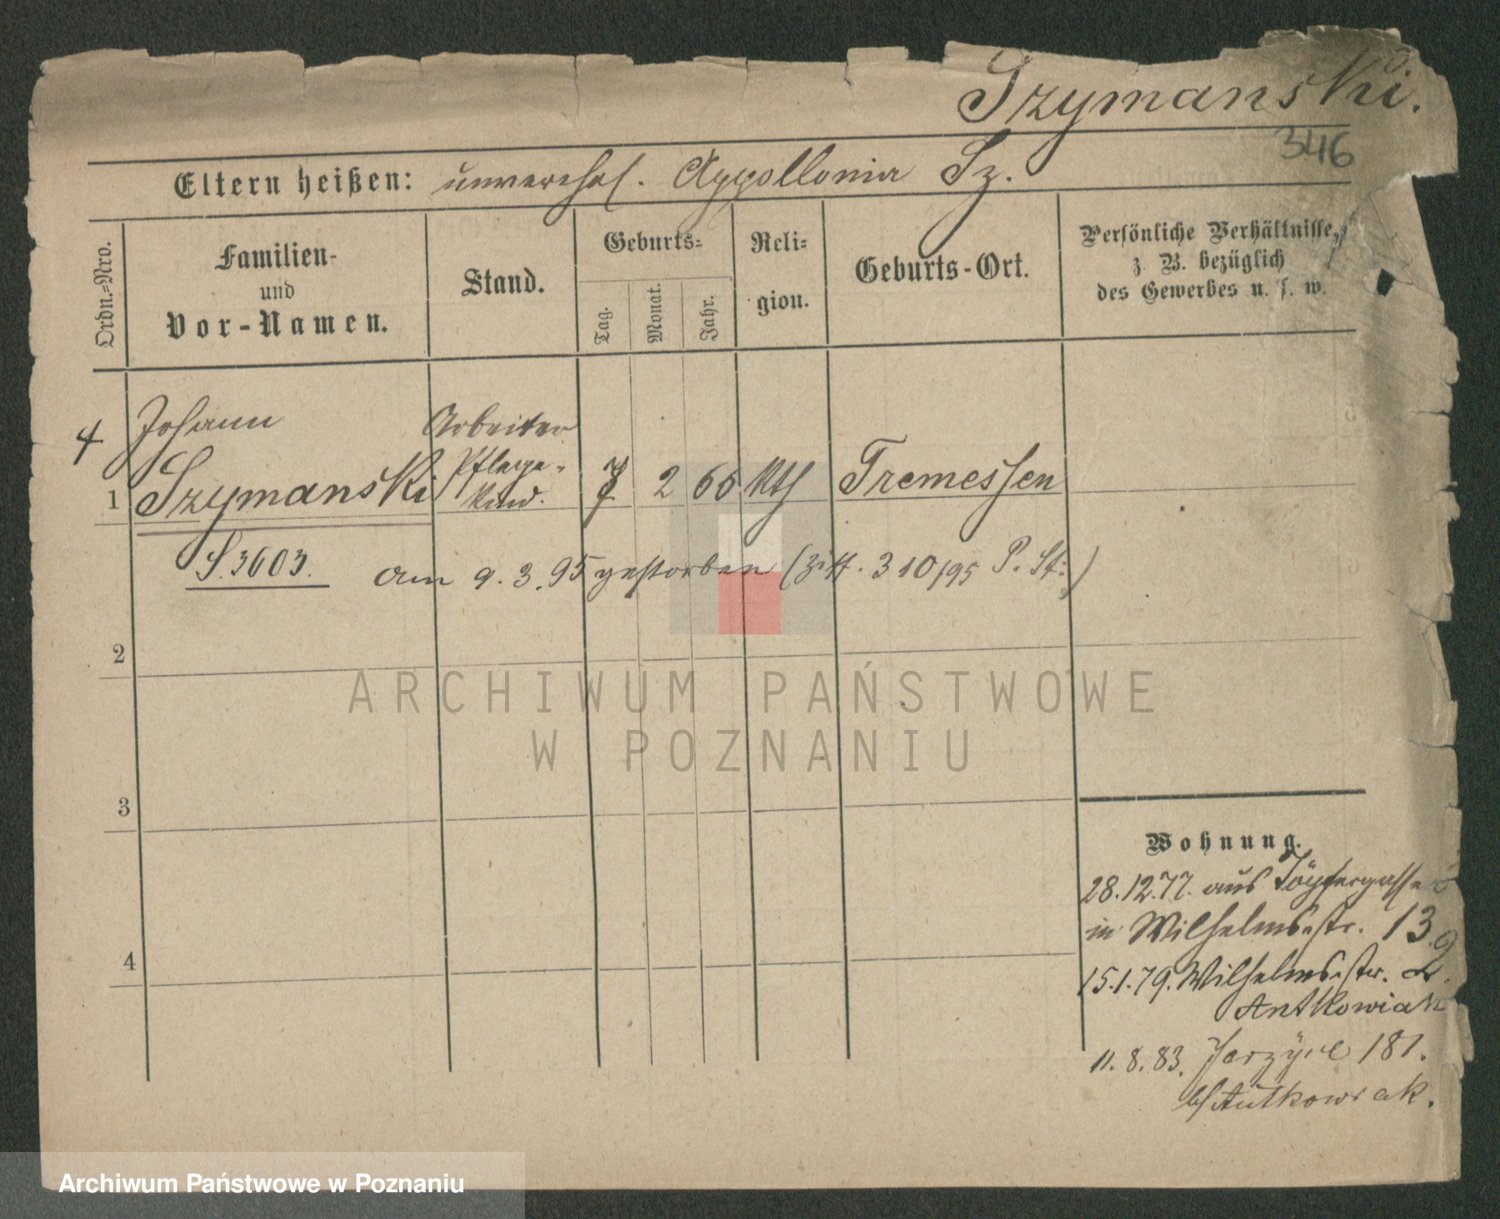 Szymanski.
346
Eltern heißen: unverehel. Appollonia Sz.
Ordn.-Nro.
Familien-
und
Vor-Namen.
Stand.
Geburts-
Tag.
Monat.
Jahr.
Reli-
gion.
Geburts-Ort.
Persönliche Verhältnisse,
z. B. bezüglich
des Gewerbes u. s. w.
Johann
Arbeiter
4
Pflege-
1 Szymanski kind. 2 66 kth Tremessen
S. 3603.
am 9.3.95 gestorben (Ziff. 310/95 P. St.)
2
3
4
Wohnung.
28.12.77. aus Töpfergasse
in Wilhelmsstr. 13.
15.1.79. Wilhelmsstr. 2.
Antkowiak
11.8.83. Jerzyce 181.
b/Antkowiak.
ARCHIWUM PAŃSTWOWE
W POZNANIU
Archiwum Państwowe w Poznaniu